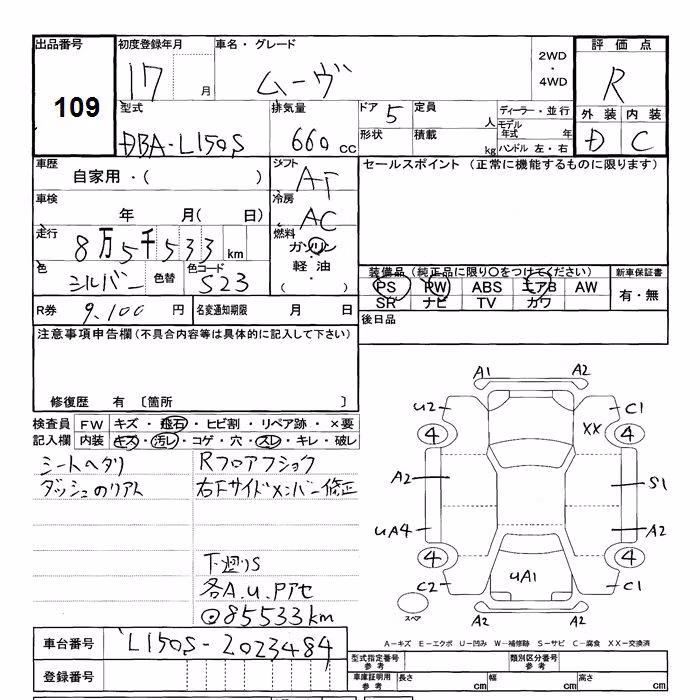 出品番号 初度登録年月 車名・グレード 評価点
109 17 月 ムーヴ 2WD・4WD R
型式 排気量 ドア 5 定員 人 ディーラー・並行 外装 内装
DBA-L150S 660 cc 形状 積載 kg モデル年式 年 D C
ハンドル 左・右
車歴 シフト セールスポイント (正常に機能するものに限ります)
自家用・( ) AT
車検 冷房
年 月( 日) AC
走行 燃料
8万5千533 km ガソリン
色 色替 色コード 軽油
シルバー S23 ( ・ )
装備品(純正品に限り○をつけてください) 新車保証書
PS PW ABS エアB AW 有・無
SR ナビ TV カワ
R券 9,100 円 名変通知期限 月 日 後日品
注意事項申告欄(不具合内容等は具体的に記入して下さい)
修復歴 有 〔箇所 〕
検査員 FW キズ・飛石・ヒビ割・リペア跡・×要
記入欄 内装 キズ・汚レ・コゲ・穴・スレ・キレ・破レ
シートヘタリ Rフロアフショク
ダッシュのリアト 右下サイドメンバー修正
下廻りS
各A.U.Pアセ
85533km
A1 A2
U2 C1
XX
4 4
A2 S1
UA4 A2
4 4
UA1
C2 C1
A2 A2
スペア
A-キズ E-エクボ U-凹み W-補修跡 S-サビ C-腐食 XX-交換済
車台番号 L150S-2023484
型式指定番号 参考 類別区分番号 参考
登録番号 車庫証明用 参考 長さ cm 幅 cm 高さ cm